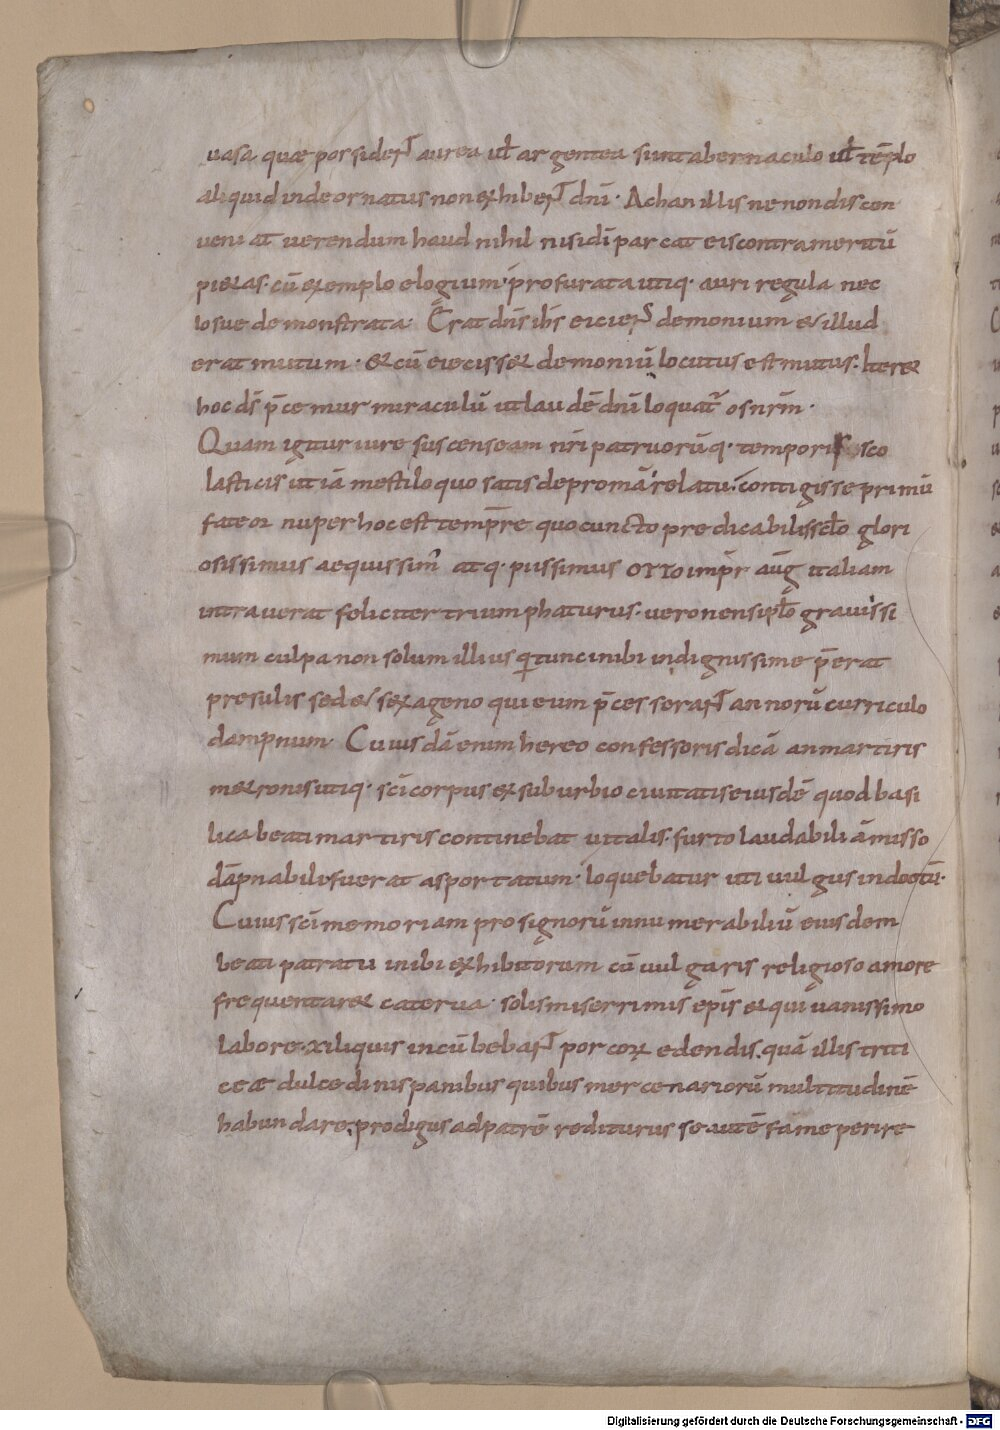 uasa quae possideNT aurea ul̄ argentea sunt abernaculo ul̄ tēplo
aliquid inde ornatus non exhibeNT dn̄i· Achan illis ne non discon
ueniat uerendum haud nihil nisi dī parcat eis contra meritū
pietas· cū exemplo elogium· profurata utiq· auri regula nec
Iosue demonstrata· Erat dn̄s ih̄s eicieNS demonium et illud
erat mutum· et cū eiecisset demoniū locutus est mutus· Iteret
hoc ds̄ p̄cemur miraculū ut laudē dn̄i loquat᷑ os nr̄m·
Quam igitur iure suscenseam nr̄i patruorūq· temporis sco
lasticis ut iā mestiloquo satis depromā relatu· contigisse primū
fateor nuper hoc est temp̄re quo cuncto predicabilis sc̄lo glori
osissimus aequissim᷒ atq· piissimus OTTO imp̄r aūg italiam
intrauerat feliciter triumphaturus· ueronensi pl̄o grauissi
mum culpa non solum illius q̄ tunc inibi indignissime p̄erat
presulis sed et sexageno qui eum p̄cesseraNT annorū curriculo
dampnum· Cuiusdā enim hereo confessoris dicā an martiris
metronis utiq· sc̄i corpus ex suburbio ciuitatis eiusdē quod basi
lica beati martiris continebat uitalis· furto laudabili āmisso
dāpnabili fuerat asportatum· loquebatur uti uulgus indoctū·
Cuius sc̄i memoriam pro signorū innumerabiliū eiusdem
beati patratu inibi exhibitorum cū uulgaris religioso amore
frequentaret caterua· solis miserrimis ep̄is et qui uanissimo
labore· xiliquis incūbebaNT porcorum edendis· quā illis triti
ceae dulcedinis panibus quibus mercenariorū multitudinē
habundare· prodigus ad patrē rediturus se autē fame perire
Digitalisierung gefördert durch die Deutsche Forschungsgemeinschaft - DFG